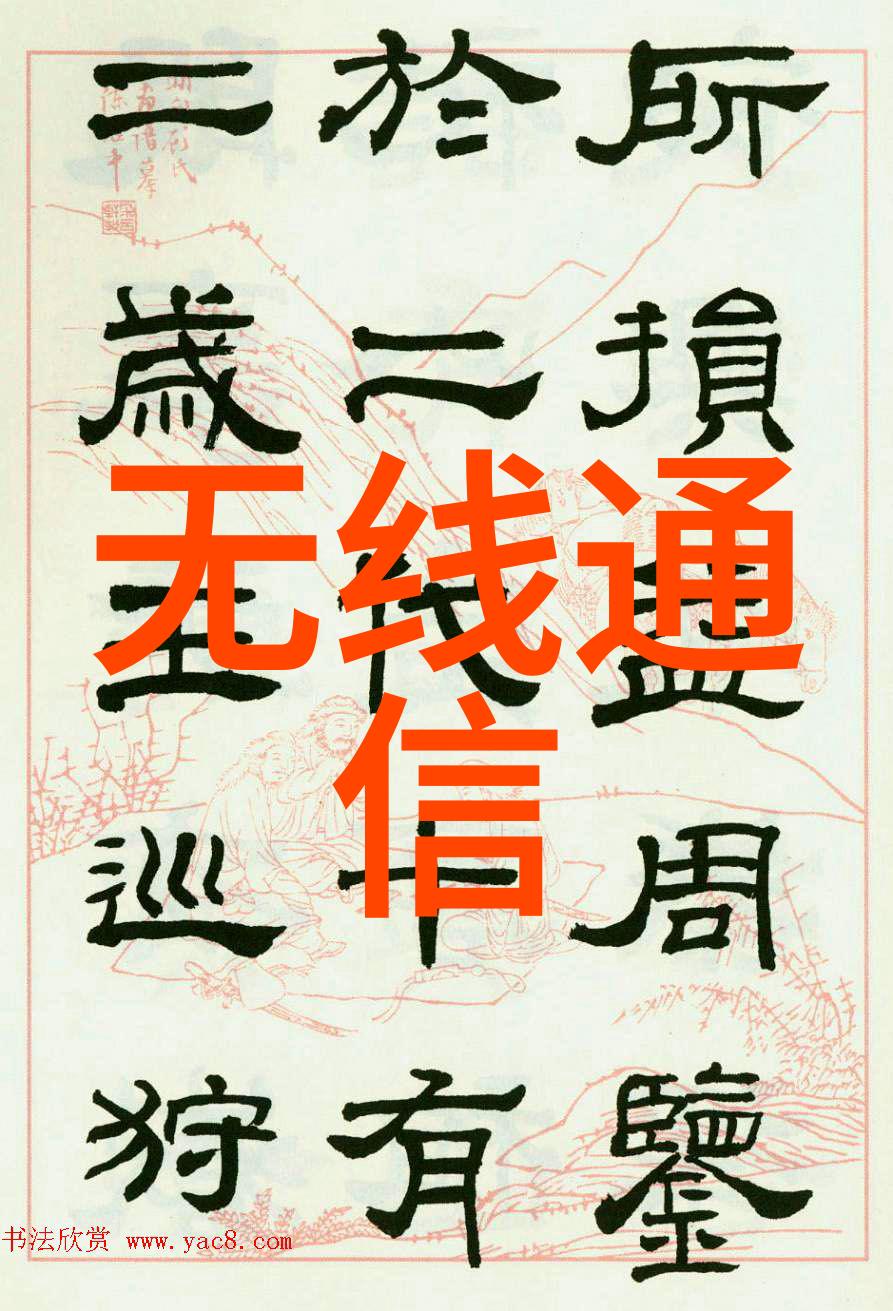 所損益周鑒
於二代十有
二歲王巡狩
无线通
信
书法欣赏 www.yac8.com